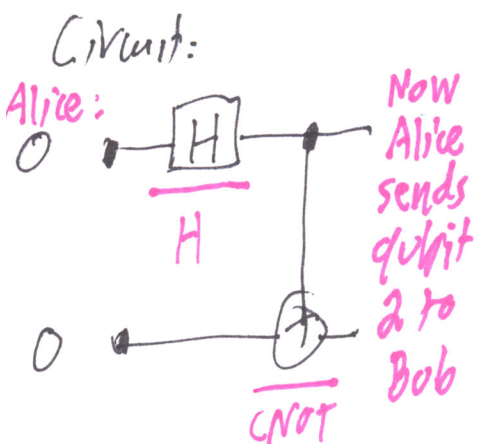 Circuit:
Alice:
0
H
H
0
CNOT
Now
Alice
sends
qubit
2 to
Bob